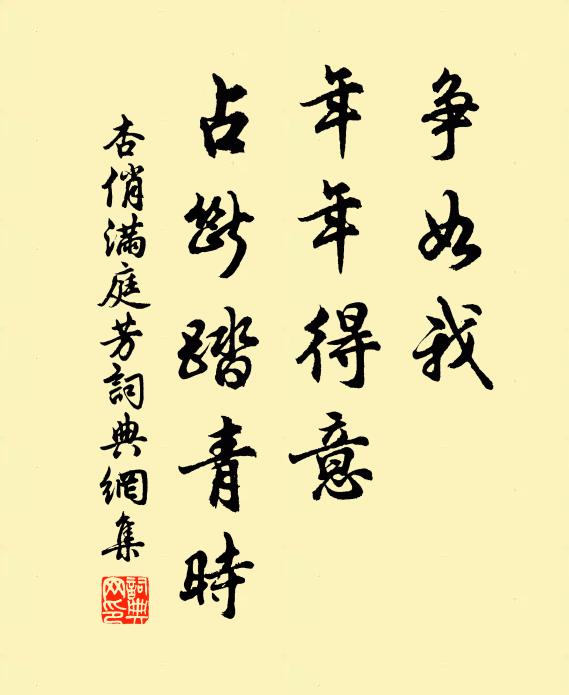 争如我
年年得意
占斷踏青時
杏俏滿庭芳詞典網集
詞典網印